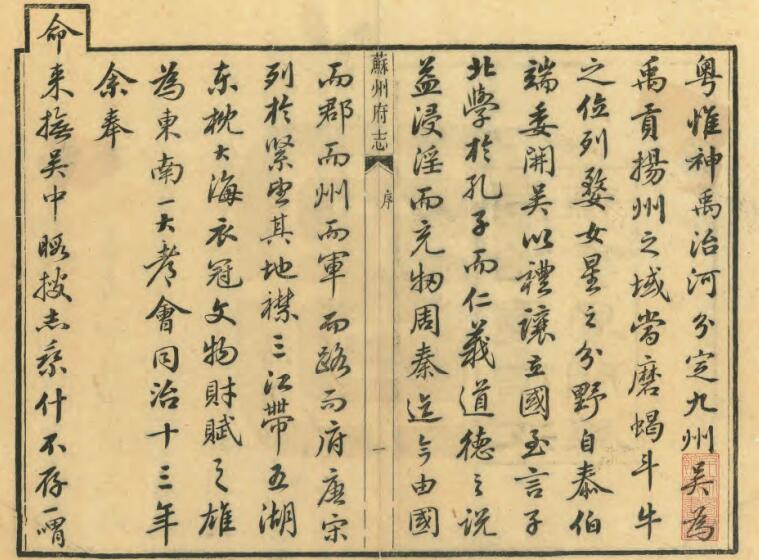 粤惟神禹治河分定九州吳為
禹貢揚州之域當磨蝎斗牛
之位列婺女星之分野自泰伯
端委開吳以禮讓立國至言子
北學於孔子而仁義道德之説
益浸淫而充牣周秦迄今由國
蘇州府志
序
一
而郡而州而軍而路而府唐宋
列於緊望其地襟三江帶五湖
東枕大海衣冠文物財賦之雄
為東南一大都會同治十三年
余奉
命来撫吳中暇搜志乘什不存一喟